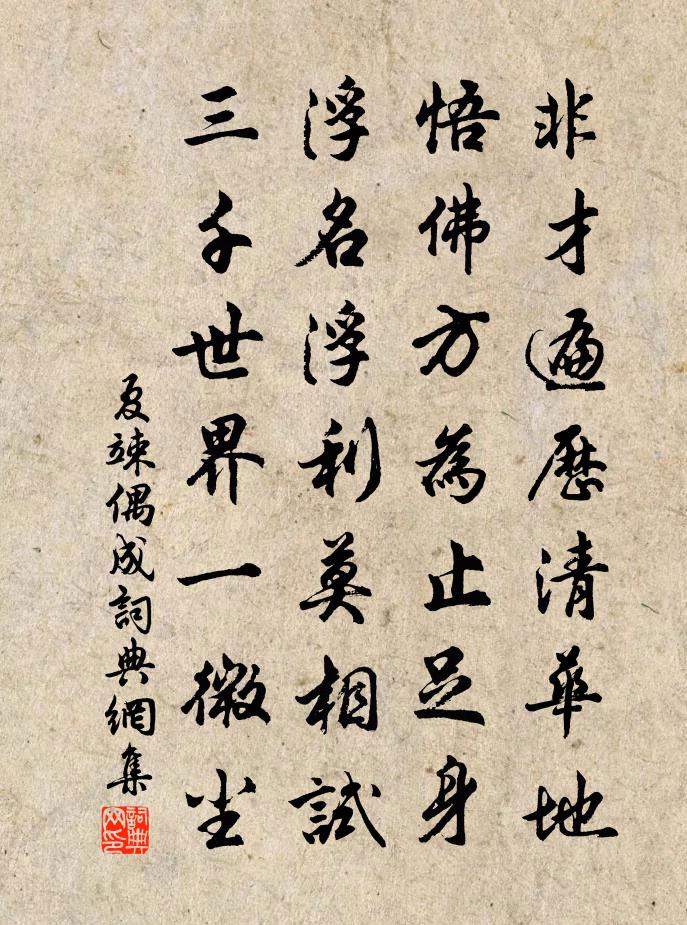 非才遍歷清華地
悟佛方為止足身
浮名浮利莫相試
三千世界一微尘
夏竦偶成詞典網集
詞典網印